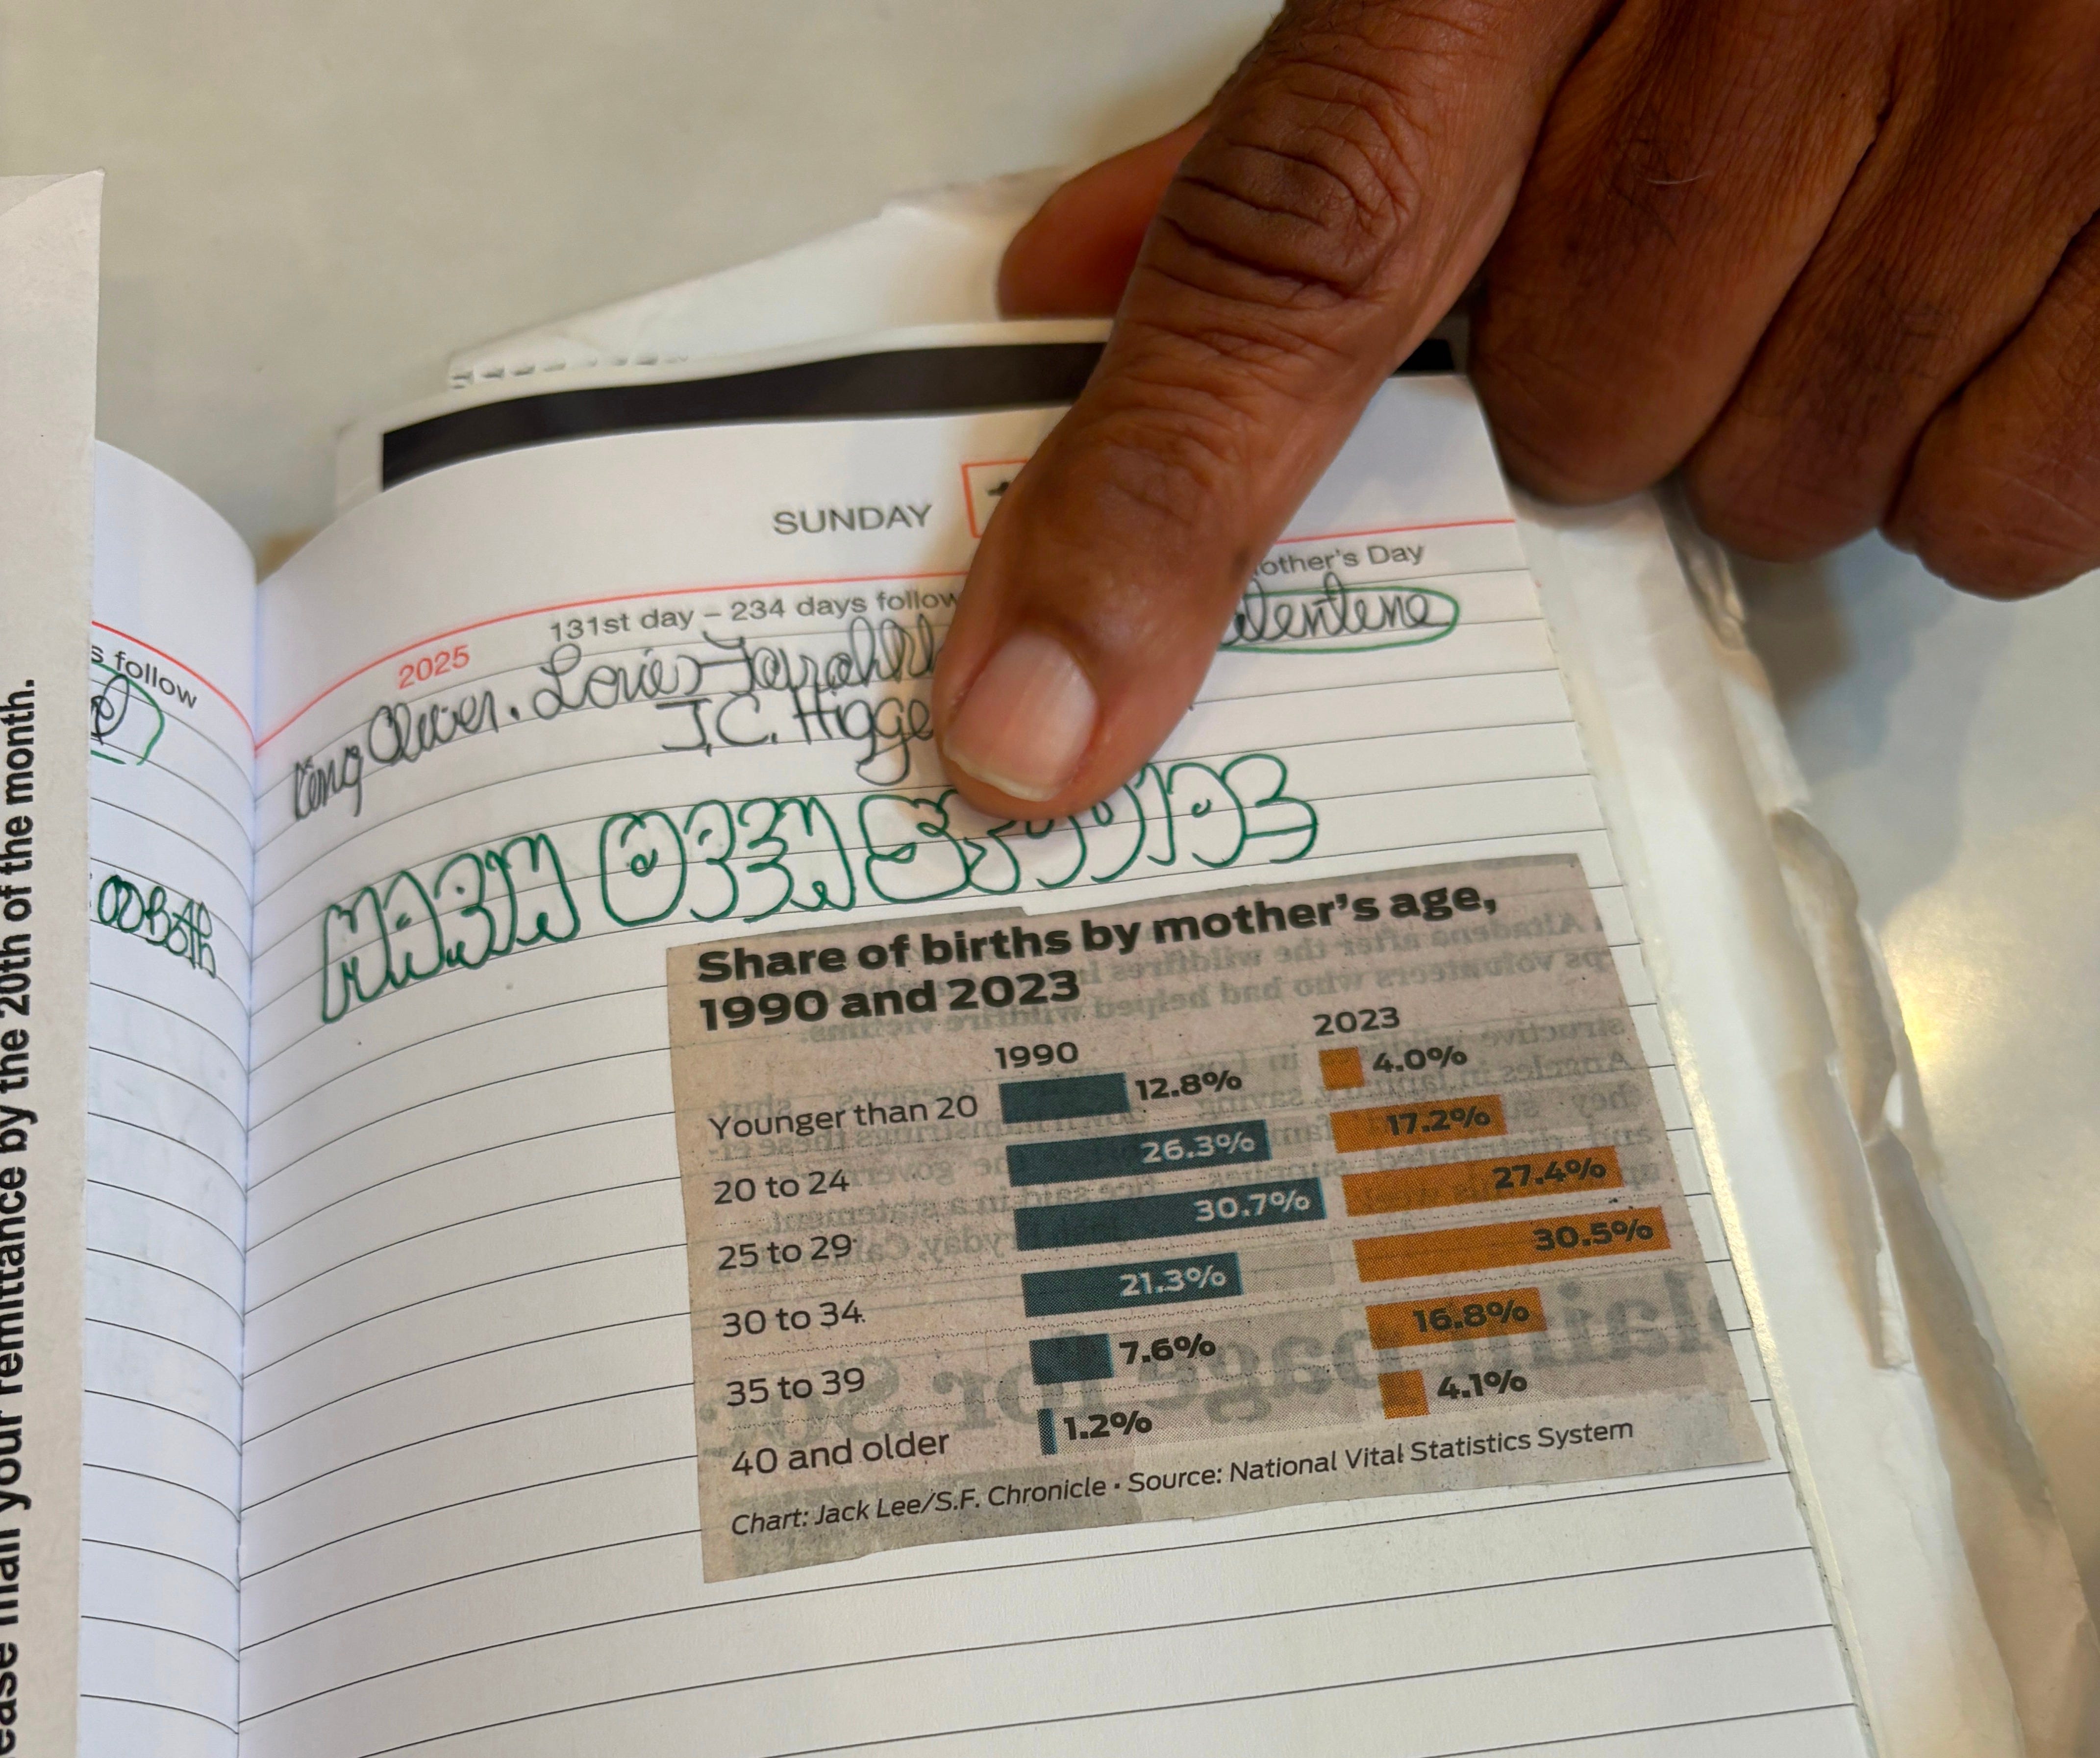 ease mail your remittance by the 20th of the month.
s follow
SUNDAY
other's Day
131st day – 234 days follow
2025
King Oliver. Louis J.C. Higge
MARIN OPEN STUDIOS
Share of births by mother's age,
1990 and 2023
1990 2023
Younger than 20 12.8% 4.0%
20 to 24 26.3% 17.2%
25 to 29 30.7% 27.4%
30 to 34 21.3% 30.5%
35 to 39 7.6% 16.8%
40 and older 1.2% 4.1%
Chart: Jack Lee/S.F. Chronicle • Source: National Vital Statistics System